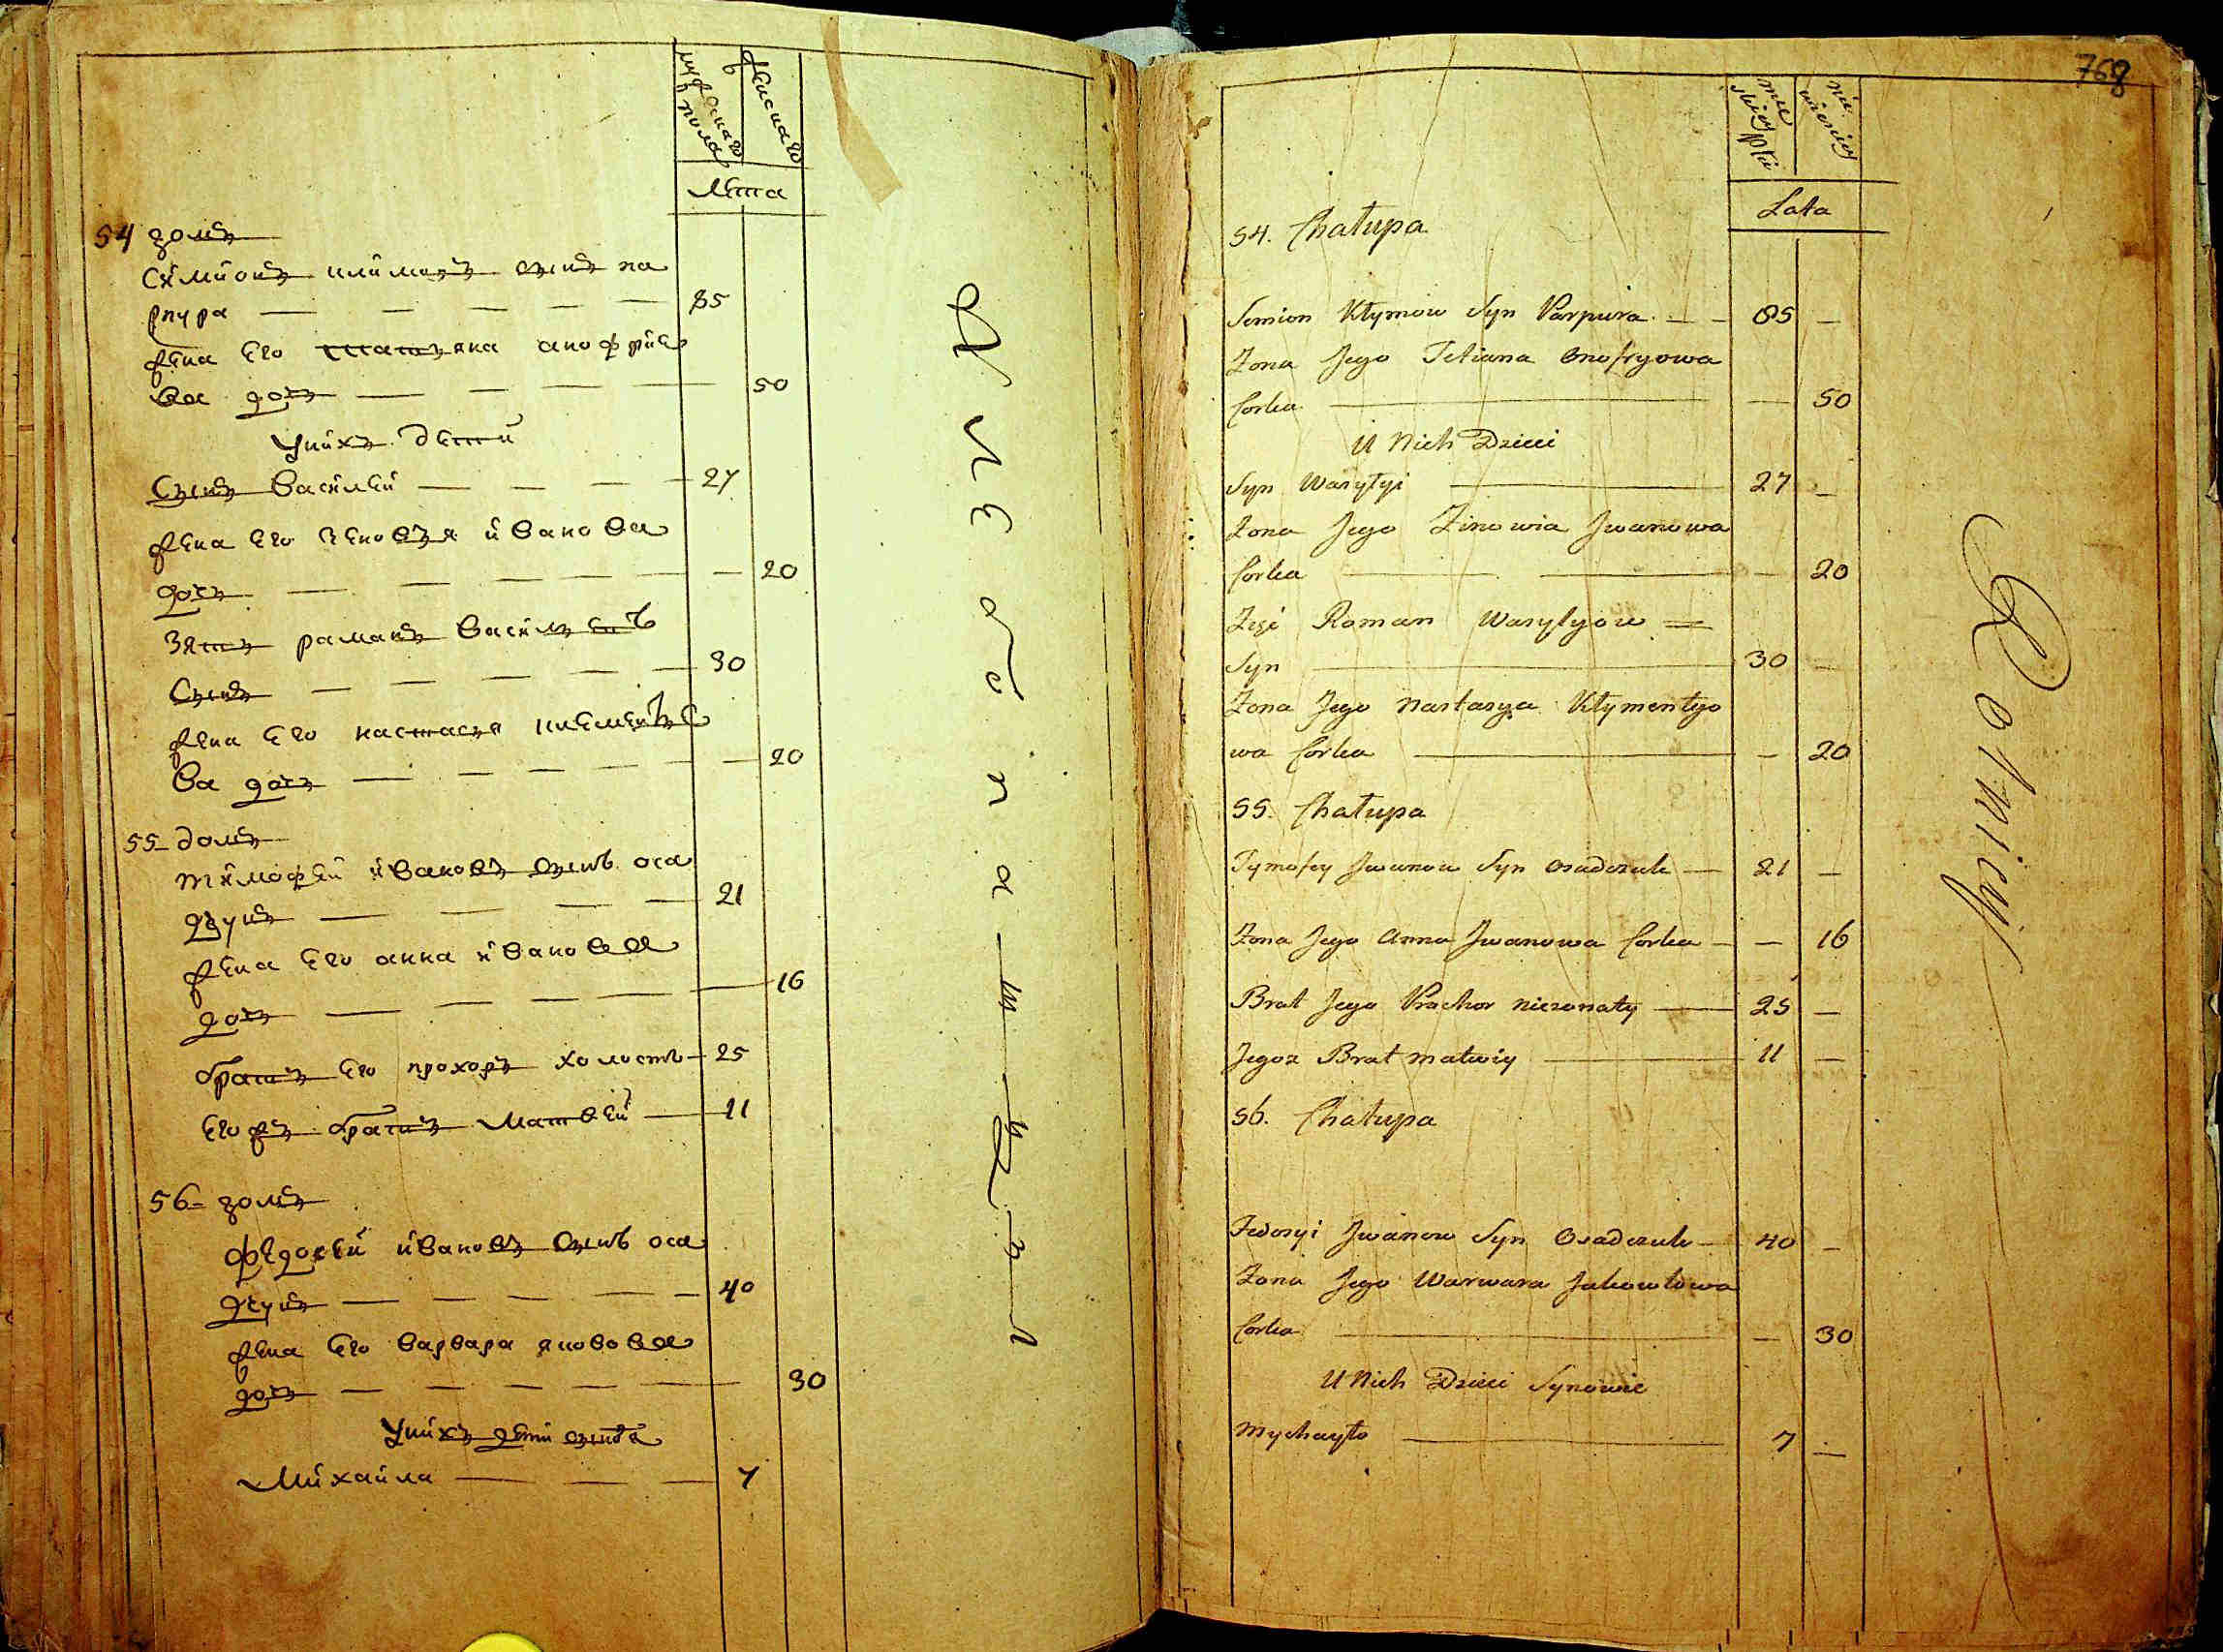 мужеска
пола
женска
Лета
54 домъ
Симионъ климовъ сынъ па
рпура — — — — — 85
жена его татьяна анофрие
ва дочь — — — — 50
У нихъ дети
Сынъ Василей — — — — 27
жена его зеновья иванова
дочь — — — — — — 20
Зять романъ Васильевъ
Сынъ — — — — — 30
жена его настасья климентье
ва дочь — — — — — — 20
55 домъ
тимофей ивановъ сынъ оса
дчукъ — — — — 21
жена его анна иванова
дочь — — — — — 16
братъ его прохоръ холостъ — 25
его жъ братъ Матвей — 11
56 домъ
федосей ивановъ сынъ оса
дчукъ — — — — — 40
жена его варвара яковова
дочь — — — — — 30
У нихъ дети сынове
Михайла — — — 7
768
Lata
54. Chałupa
Semion Kłymow Syn Parpura — — 85 —
Zona Jego Tetiana Onofryowa
Corka — — 50
U Nich Dzieci
Syn Wasylyi — 27 —
Zona Jego Zinowia Jwanowa
Corka — — — 20
Zięć Roman Wasylyow =
Syn — 30 —
Zona Jego Nastasya Kłymentyo
wa Corka — — 20
55. Chałupa
Tymofey Jwanow Syn Osadczuk — 21 —
Zona Jego Anna Jwanowa Corka — — 16
Brat Jego Prochor niezonaty — 25 —
Jegoz Brat Matwiy — 11 —
56. Chałupa
Fedosyi Jwanow Syn Osadczuk — 40 —
Zona Jego Warwara Jakowłowa
Corka — — 30
U Nich Dzieci Synowie
Mychayło — 7 —
Rolnicy